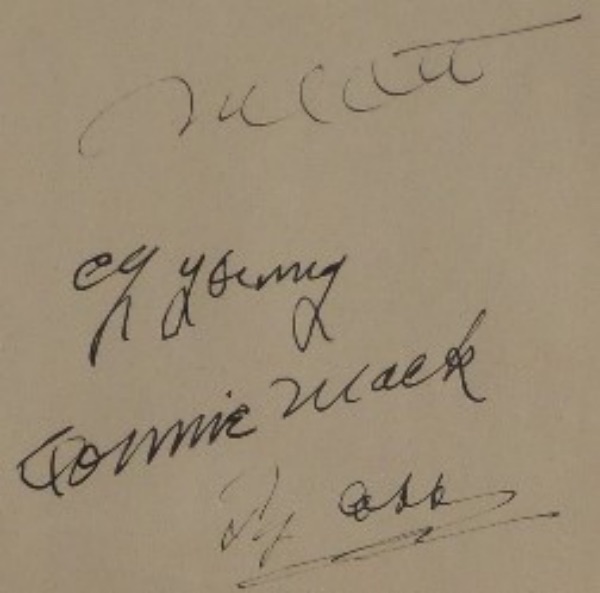 Mel Ott
Cy Young
Connie Mack
Ty Cobb